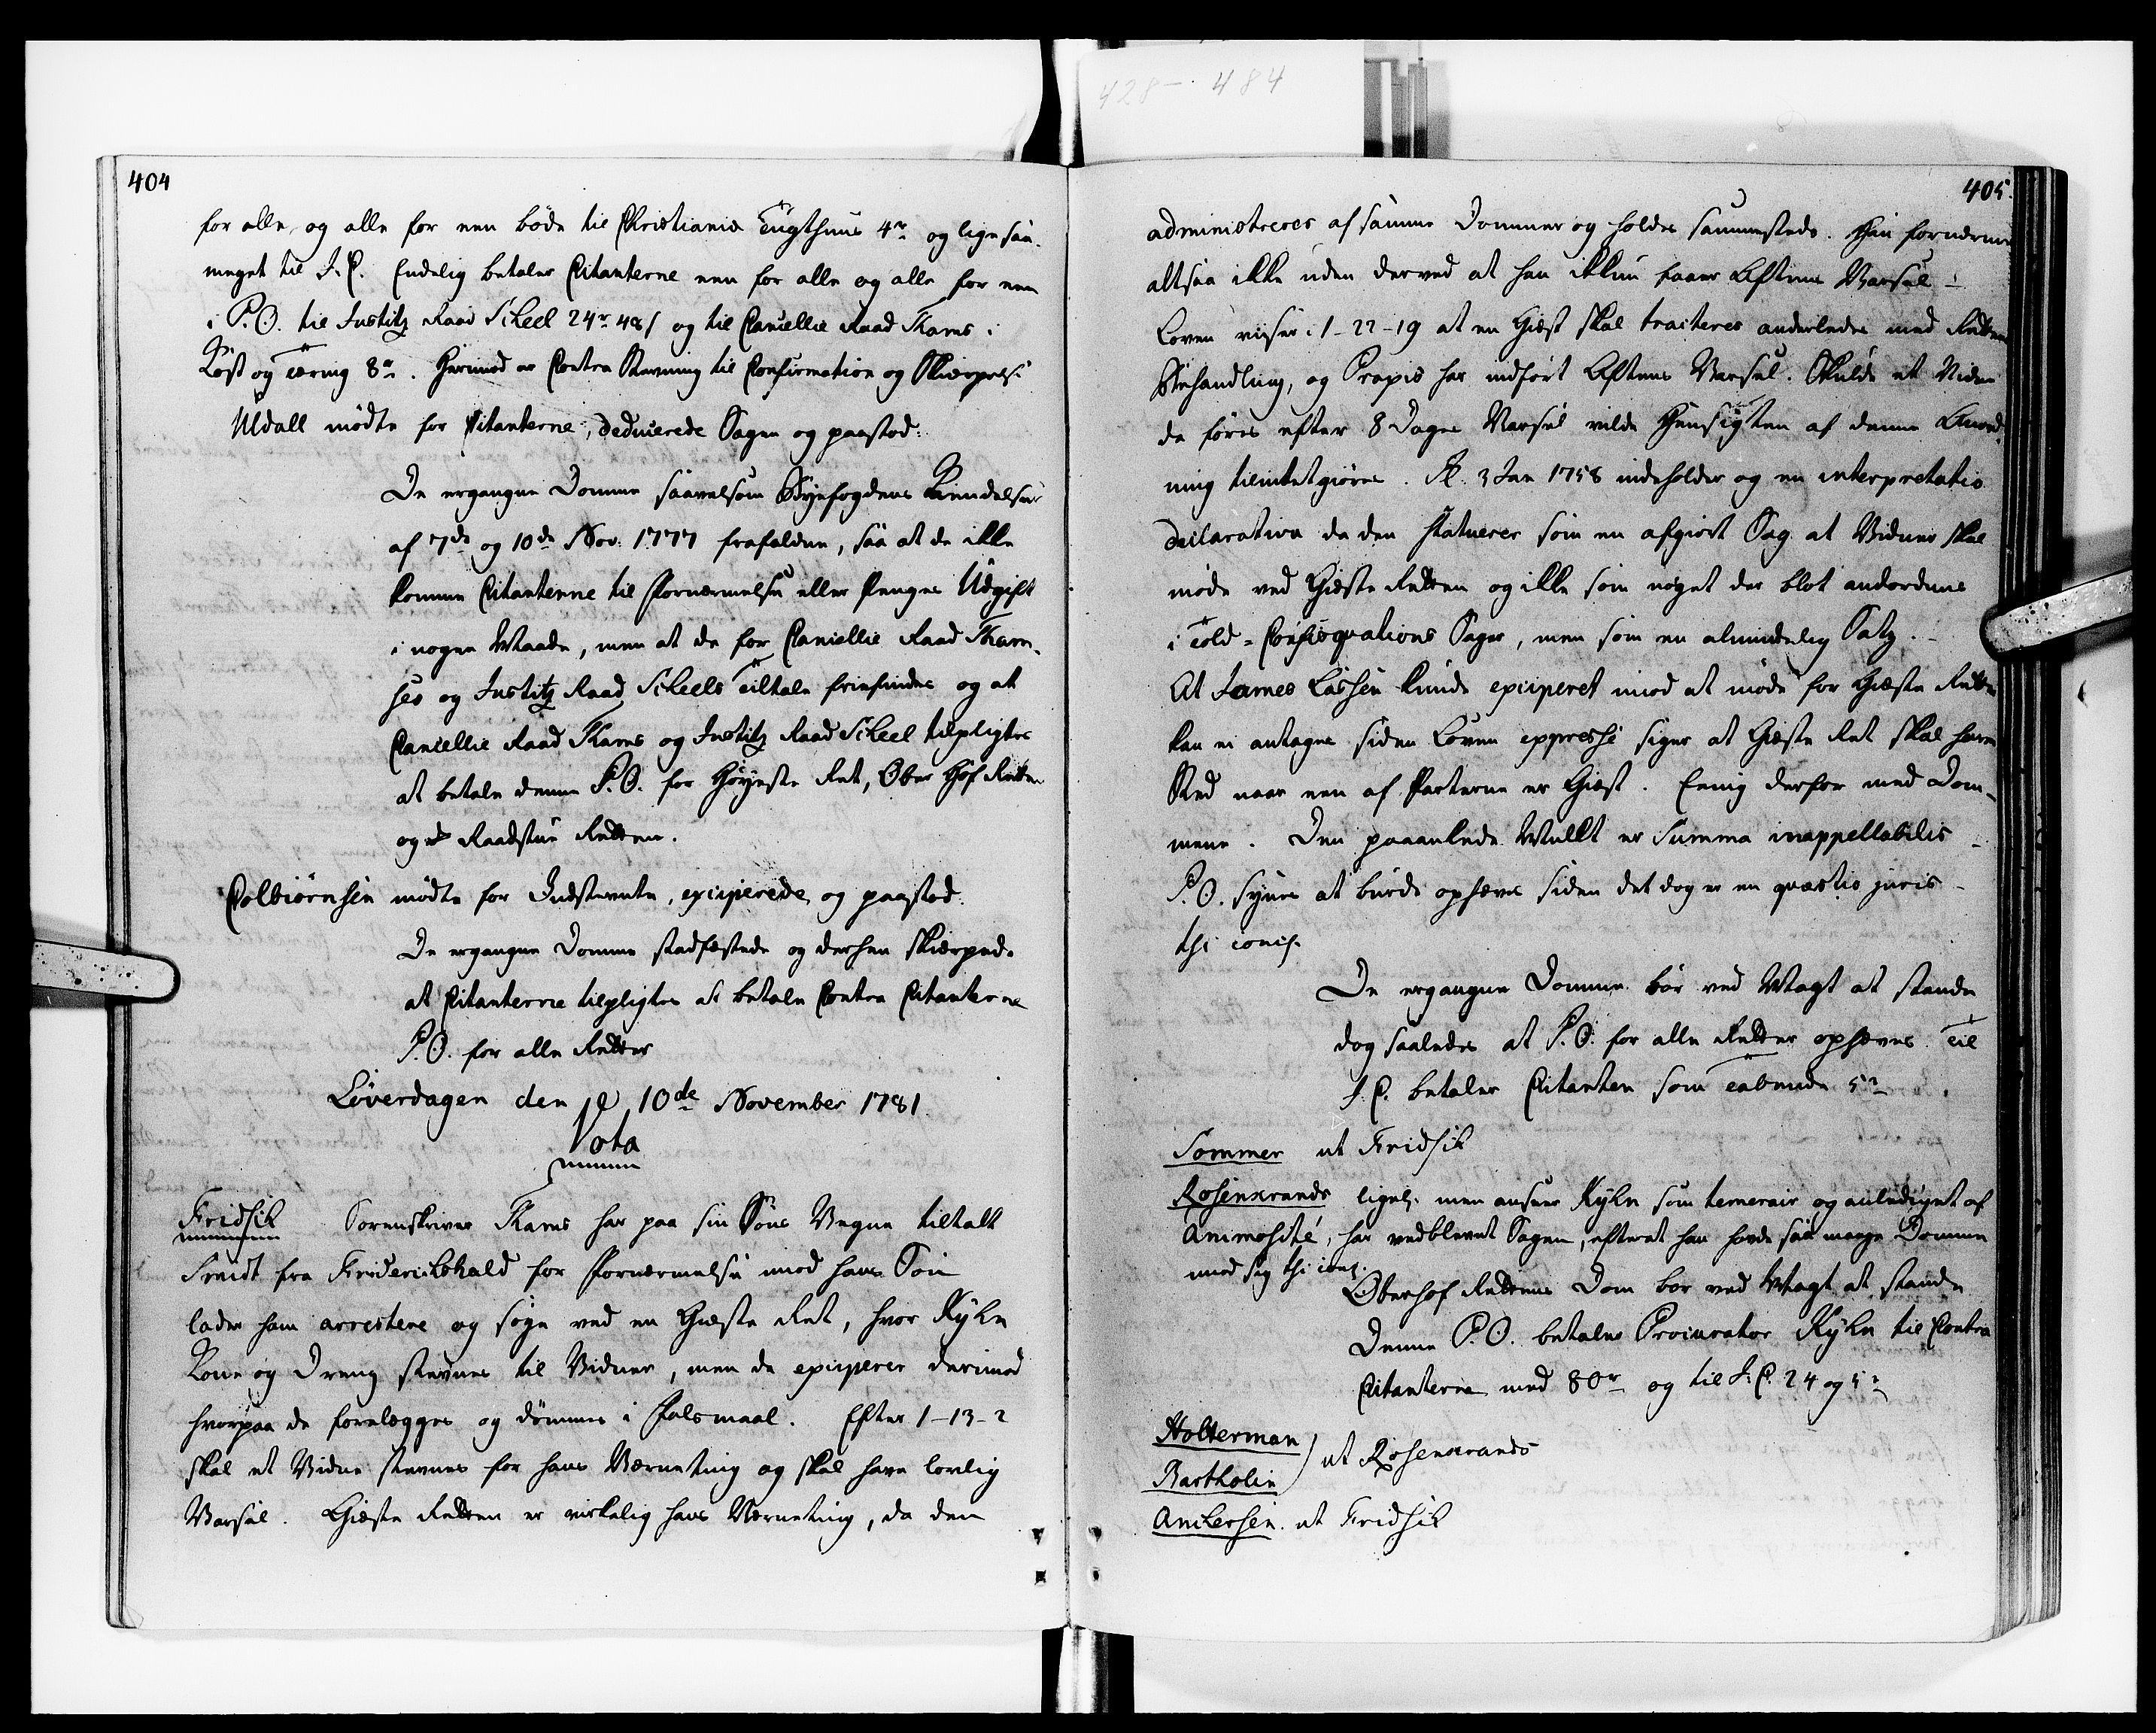 428 – 484
404
for alle, og alle for een bøde til Christiania Tugthuus 4rd og lige saa
meget til J. C. Endelig betaler Citanterne een for alle og alle for een
i P. O. til Justitz Raad Scheel 24rd 48s og til Cancellie Raad Thams i
Kost og Tæring 8rd. Herimod er Contra Stevning til Confirmation og Skiærpelse
Udall mødte for Citanterne, deducerede Sagen og paastod:
De ergangne Domme saavelsom Byefogdens Kiendelser
af 7de og 10de Nov. 1777 frafaldne, saa at de ikke
komme Citanterne til Fornærmelse eller Penges Udgift
i nogen Maade, men at de for Cancellie Raad Tham-
ses og Justitz Raad Scheels Tiltale friefindes og at
Cancellie Raad Thams og Justitz Raad Scheel tilpligtes
at betale denne P. O. for Høyeste Ret, Ober Hof Retten
og Raadstue Retten.
Colbiørnsen mødte for Indstevnte, exciperede og paastod.
De ergangne Domme stadfæstede og derhen skiærpede
at Citanterne tilpligtes at betale Contra Citanterne
P. O. for alle Retter
Løverdagen den 10de November 1781.
Vota
Fridsch Sorenskriver Thams har paa sin Søns Vegne tiltalt
Smidt fra Friderichshald for Fornærmelse mod hans Søn
lader ham arrestere og søge ved en Gieste Ret, hvor Kyhn
Kone og Dreng stevnes til Vidner, men de exciperer derimod
hvorpaa de forelægges og dømmes i Falsmaal. Efter 1-13-2
skal et Vidne stevnes for hans Værneting og skal have lovlig
Varsel. Gieste Retten er virkelig hans Værneting, da den
405.
administreres af samme Dommer og holdes sammesteds. Han fornærmes
altsaa ikke uden derved at han ikkun faaer Aftens Varsel –
Loven viiser 1-22-19 at en Giest skal tracteres anderledes med Rettens
Behandling, og Praxis har indført Aftens Varsel. Skulde et Vidne
da føres efter 8 Dages Varsel vilde Hensigten af denne Anord-
ning tilintetgiøres. Pl. 3 Jan 1758 indeholder og en interpretatio
declarativa da den statuerer som en afgiort Sag at Vidner skal
møde ved Gieste Retten og ikke som noget der blot anordnes
i Told-Confisquations Sager, men som en almindelig Satz. –
At James Lassen kunde exciperet imod at møde for Gieste Retten
kan ei antages siden Loven expresse siger at Gieste Ret skal have
Sted naar een af Parterne er Giest. Eenig derfor med Dom-
mene. Den paaankede Mulkt er Summa inappellabilis –
P. O. synes at burde ophæves siden det dog er en quæstio juris –
thi conch.
De ergangne Domme bør ved Magt at stande
dog saaledes at P. O. for alle Retter ophæves. Til
J. C. betaler Citanten som tabende 5rd
Sommer ut Fridsch
Rosencrands ligel. men anseer Kyhn som temerair og anlediget af
Animosité, har vedblevet Sagen, efterat han havde saa mange Domme
mod sig thi conch.
Oberhof Rettens Dom bør ved Magt at stande
Denne P. O. betaler Procurator Kyhn til Contra
Citanterne med 80rd og til J. C. 24 og 5rd
Holterman
Bartholin ) ut Rosencrands
Anchersen. ut Fridsch